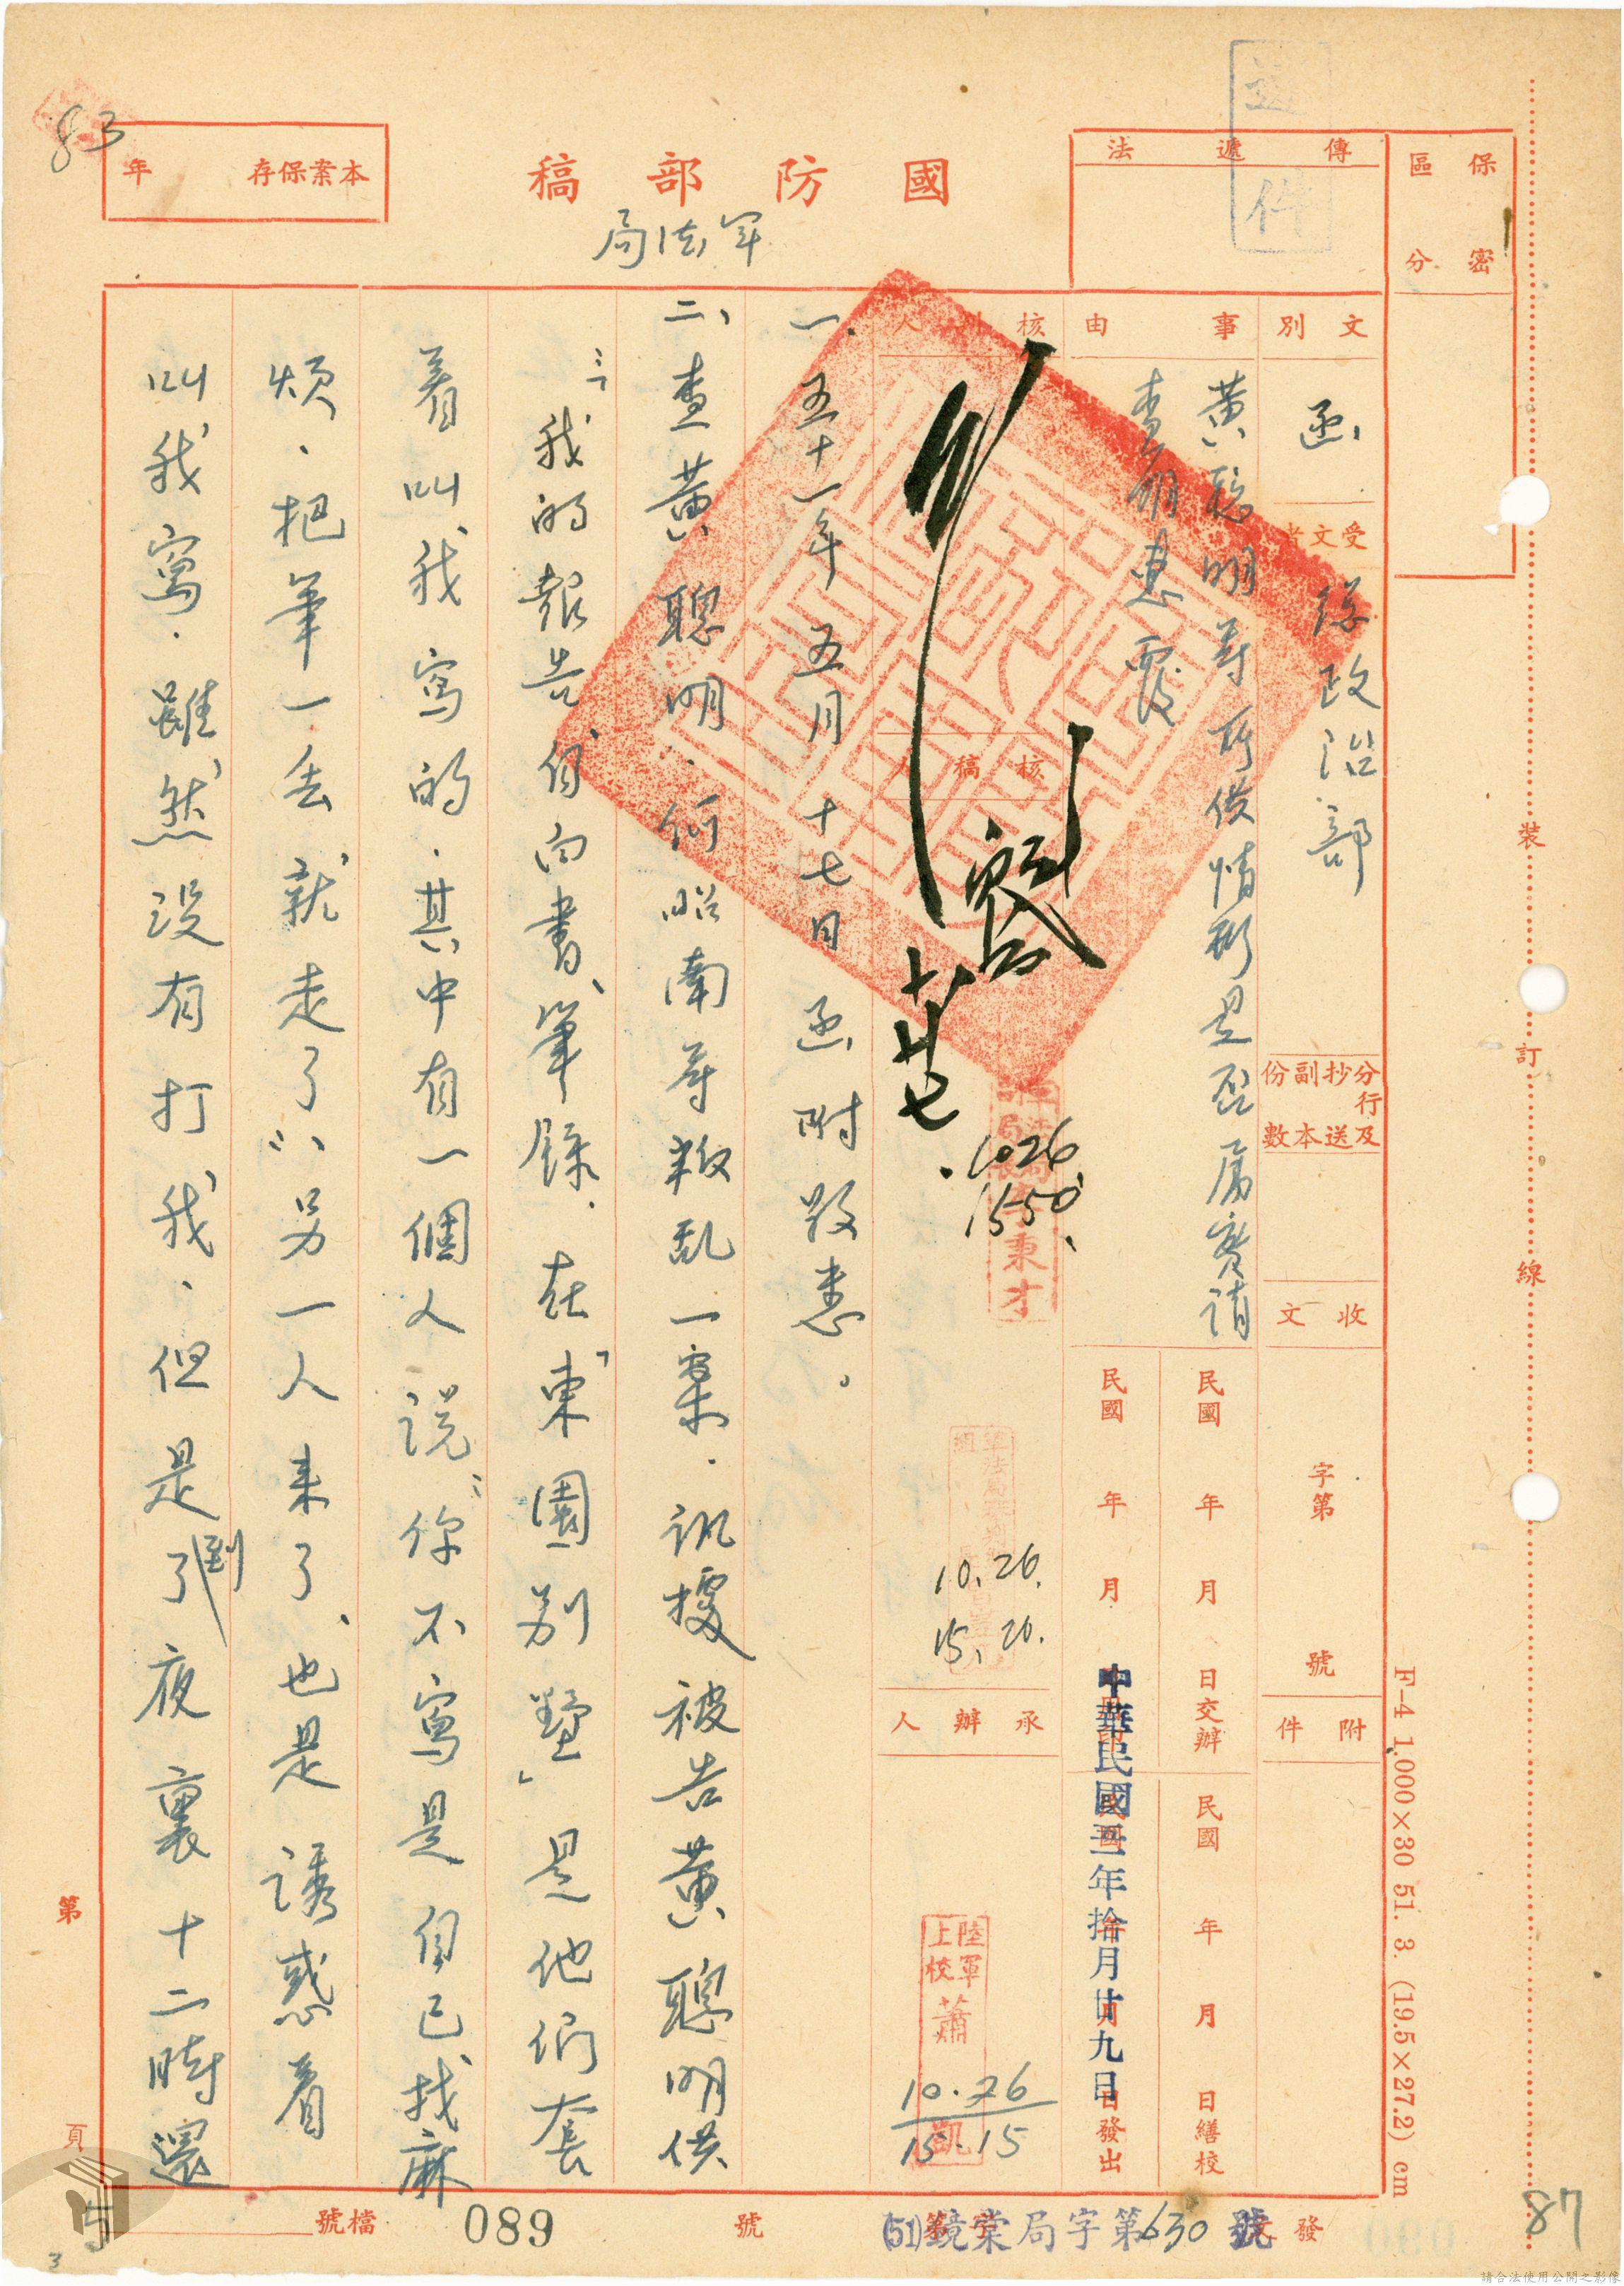 國防部稿
軍法局
本案保存 年
83
傳遞法
速件
保密區分
文別 函
受文者 總政治部
分行及抄送副本份數
收文 字第 號
附件
事由
黃聰明等所供情形是否屬實請
查明惠覆
核判人
核稿人
承辦人
民國 年 月 日交辦
民國 年 月 日繕校
中華民國五一年拾月廿九日發出
1026
1550
10.26.
15.20.
陸軍上校蕭凱
10.26
15.15
一、五十一年五月十七日函附敬悉。
二、查黃聰明、何聰南等叛亂一案。訊據被告黃聰明供
：「我的報告、自白書、筆錄、在『東園別墅』是他們套
着叫我寫的。其中有一個人說：你不寫是自己找麻
煩。把筆一丟就走了；另一人來了、也是誘惑着
叫我寫。雖然沒有打我。但是到了夜裏十二時還
裝訂線
F-4 1,000×30 51. 3. (19.5×27.2) cm
第 頁
5
3
檔號 089
號
發文 (51)鏡棠局字第630號
87
請合法使用公開之影像